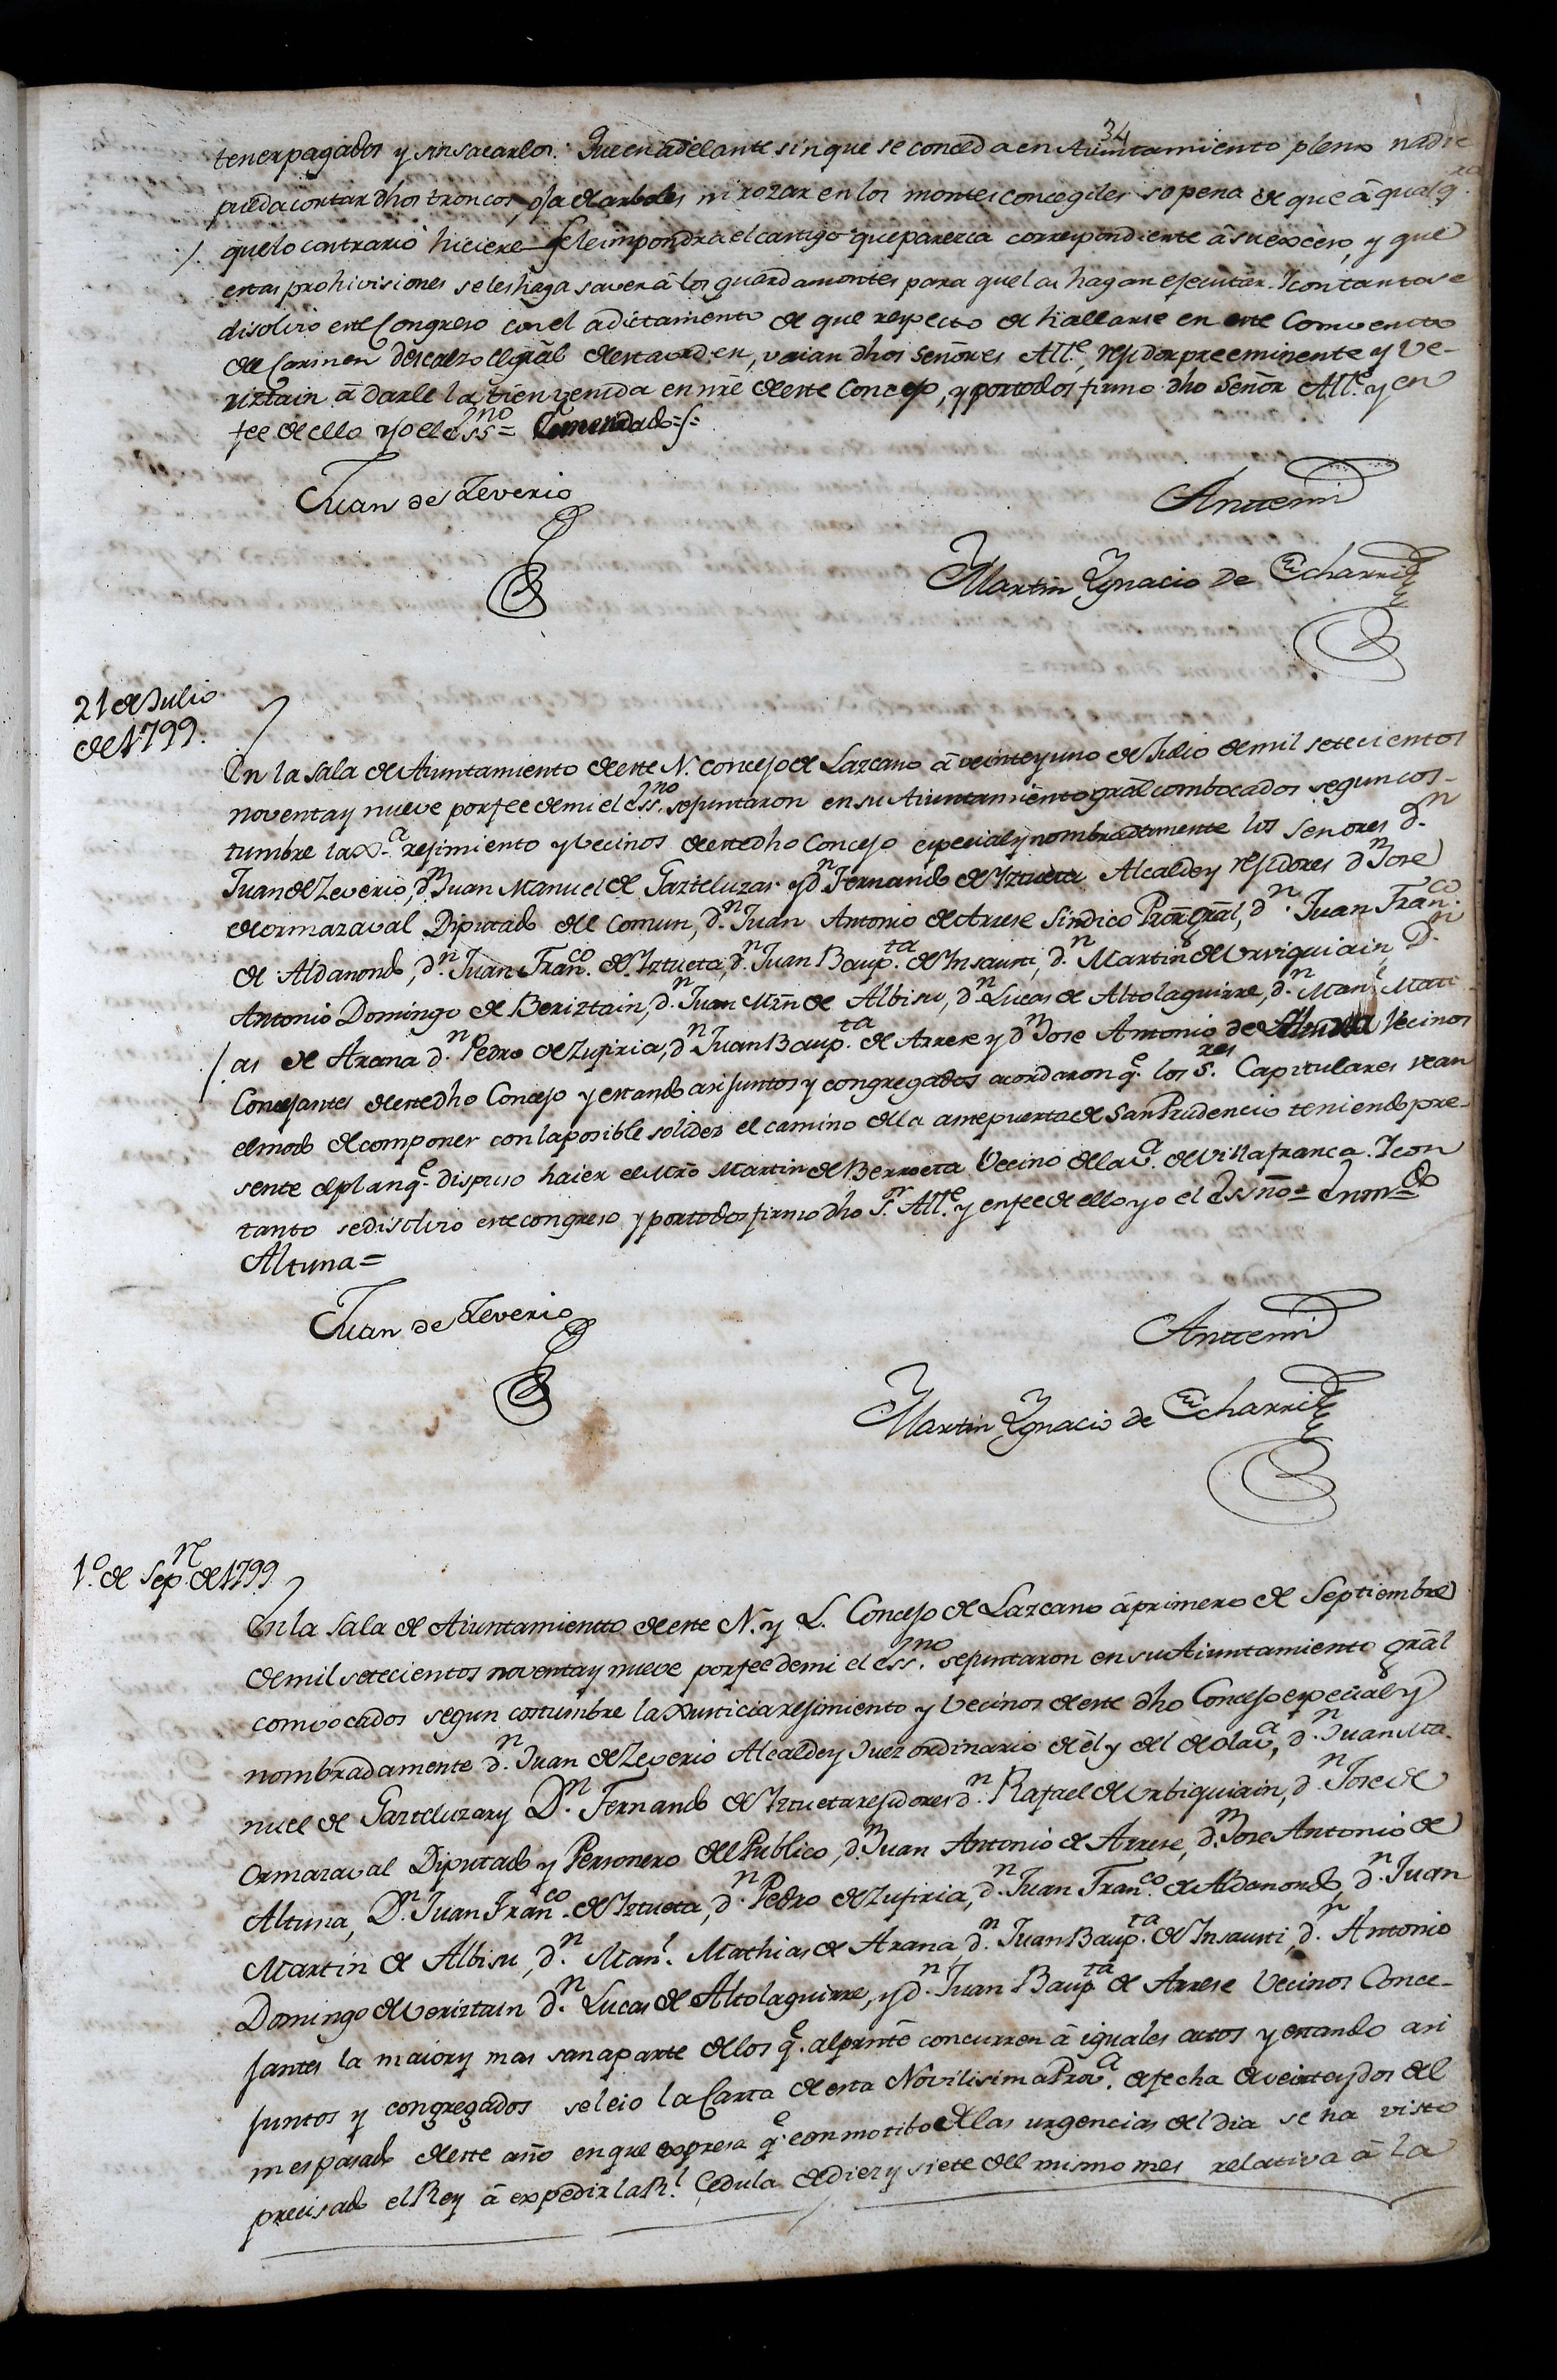 34
tener pagados y sin sacarlos: Que en adelante sin que se conceda en Aiuntamiento pleno nadie
pueda cortar dhos troncos, oja de arboles ni rozar en los montes concegiles so pena de que â qualq.ra
/. que lo contrario hiciere se le impondra el castigo que parezca correspondiente â su exceso, y que
estas prohivisiones se les haga saver â los guardamontes para que las hagan ejecutar. Y con tanto se
disolvio este Congreso con el adictamento de que respecto de hallarse en este Comvento
del Carmen descalzo el grãl de esta orden, vaian dhos señores All.e, rejidor preeminente y Ve-
riztain â darle la bien venida en nrẽ de este Concejo, y por todos firmo dho Señor All.e y en
fee de ello yo el Ess.no = Enmendado = s =
Juan de Zeverio
Antemi
Martin Ygnacio de Echarri
21 de Julio
de 1799.
En la sala de Aiuntamiento de este N. Concejo de Lazcano â veinte y uno de Julio de mil setecientos
noventa y nueve por fee de mi el Ess.no se juntaron en su Aiuntamiento grãl combocados segun cos-
tumbre la X.a rejimiento y Vecinos de este dho Concejo especial y nombradamente los Señores d.n
Juan de Zeverio, d.n Juan Manuel de Gazteluzar y d.n Fernando de Yztueta Alcalde y rejidores d.n Jose
de ormazaval Diputado del Comun, d.n Juan Antonio de Arrese Sindico Prõr Grãl, d.n Juan Fran.co
de Aldanondo, d.n Juan Fran.co de Yztueta, d.n Juan Baup.ta de Ynsausti, d.n Martin de Urviquiain, D.n
Antonio Domingo de Beriztain, d.n Juan Mrñ de Albisu, d.n Lucas de Altolaguirre, d.n Man.l Mati
/ as de Arana d.n Pedro de Zufiria, d.n Juan Baup.ta de Arrese y d.n Jose Antonio de Altuna Vecinos
Concejantes de este dho Concejo y estando asi juntos y congregados acordaron q.e los s.res Capitulares vean
el modo de componer con la posible solidez el camino de la antepuerta de San Prudencio teniendo pre-
sente el plan q.e dispuso hacer el Mrõ Martin de Berroeta Vecino de la V.a de Villafranca. Y con
tanto se disolvio este congreso y por todos firmo dho S.or All.e y en fee de ello yo el Essno = Enm.do
Altuna =
Juan de Zeverio
Antemi
Martin Ygnacio de Echarri
1.o de Sep.re de 1799
En la Sala de Aiuntamientto de este N. y L. Concejo de Lazcano â primero de Septiembre
de mil setecientos noventa y nueve por fee de mi el Ess.no se juntaron en su Aiuntamiento grãl
comvocados segun costumbre la Xusticia rejimiento y Vecinos de este dho Concejo especial y
nombradamente d.n Juan de Zeverio Alcalde y Juez ordinario de êl y del de olav.a, d.n Juan Ma-
nuel de Gazteluzar y D.n Fernando de Yztueta rejidores d.n Rafael de Urbiquiain, d.n Jose de
Ormazaval Diputado y Personero del Publico, d.n Juan Antonio de Arrese, d.n Jose Antonio de
Altuna, D.n Juan Fran.co de Yztueta, d.n Pedro de Zufiria, d.n Juan Fran.co de Aldanondo, d.n Juan
Martin de Albisu, d.n Man.l Mathias de Arana, d.n Juan Baup.ta de Ynsausti, d.n Antonio
Domingo de Veriztain d.n Lucas de Altolaguirre, y d.n Juan Baup.ta de Arrese Vecinos Conce-
jantes la maior y mas sana parte de los q.e al prnte concurren â iguales actos y estando asi
juntos y congregados se leio la Carta de esta Novilisima Prov.a de fecha de veinte y dos del
mes pasado de este año en que expresa q.e con motibo de las urgencias del dia se ha visto
precisado el Rey â expedir la R.l Cedula de diez y siete del mismo mes relativa â la